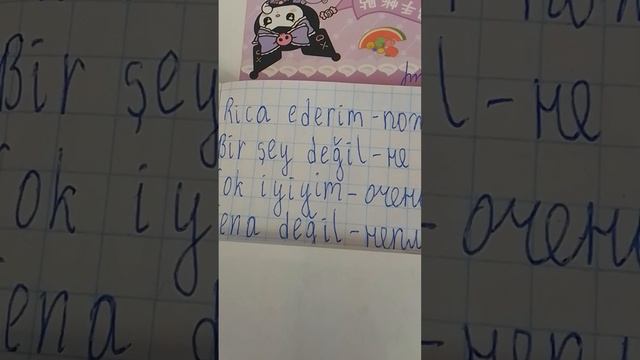 手帳貼
Rica ederim-пож
Bir şey değil-не
ok iyiyim-очен
ena değil-непл